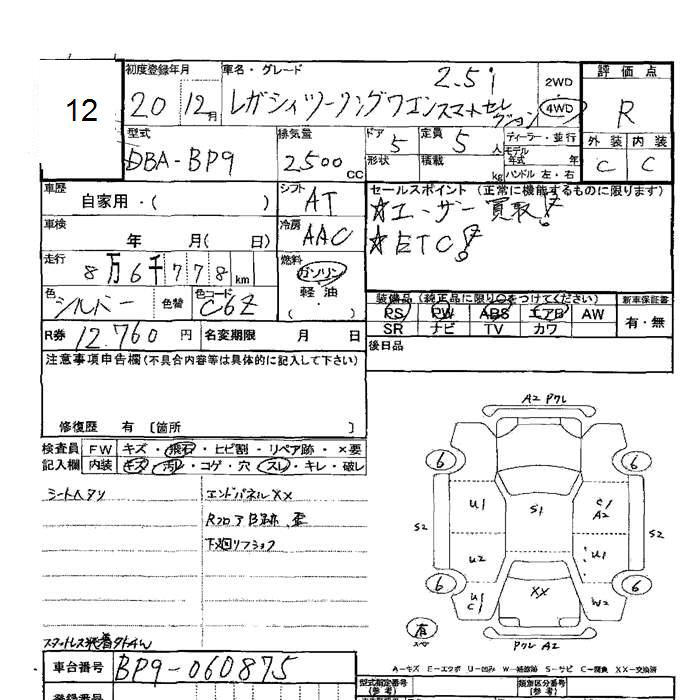 12
初度登録年月
20 12月
車名・グレード
2.5i
レガシィツーリングワゴンスマートセレクション
2WD
4WD
評価点
R
型式
DBA-BP9
排気量
2,500 cc
ドア
5
定員
5人
形状
積載
kg
ディーラー・並行
モデル年式 年
ハンドル 左・右
外装 内装
C C
車歴
自家用・( )
シフト
AT
セールスポイント(正常に機能するものに限ります)
☆ユーザー買取!
☆ETC!
車検
年 月( 日)
冷房
AAC
走行
8万6千778km
燃料
ガソリン
軽油
( ・ )
色
シルバー
色替
色コード
C6Z
装備品(純正品に限り○をつけてください)
新車保証書
PS PW ABS エアB AW
SR ナビ TV カワ
有・無
R券 12,760円
名変期限 月 日
後日品
注意事項申告欄(不具合内容等は具体的に記入して下さい)
修復歴 有 〔箇所 〕
検査員記入欄
FW キズ・飛石・ヒビ割・リペア跡・×要
内装 キズ・汚レ・コゲ・穴・スレ・キレ・破レ
シートヘタリ
エンドパネルXX
RフロアB跡、歪
下廻リフショク
スタットレス装着タトAW
A2 Pクレ
6 6
U1 S1 C1 A2
S2 S2
U2 U1
6 6
XX
U1 C1 W2
有
スペアー
Pクレ A2
A-キズ E-エクボ U-凹み W-補修跡 S-サビ C-腐食 XX-交換済
車台番号 BP9-060875
型式指定番号(参考)
類別区分番号(参考)
登録番号